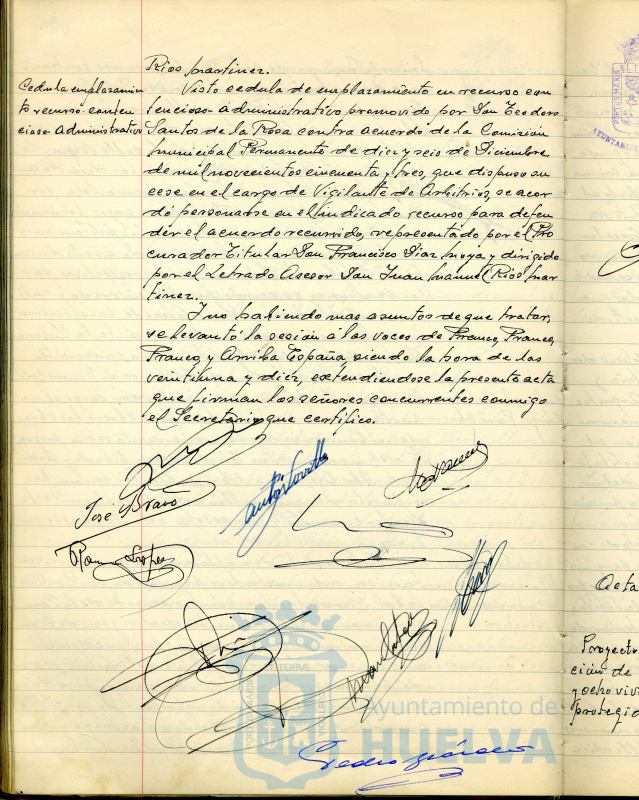 Rios Martinez.
Cedula emplazamien
to recurso conten
cioso-Administrativo
Visto cedula de emplazamiento en recurso con
tencioso-administrativo promovido por Don Teodoro
Santos de la Rosa contra acuerdo de la Comision
Municipal Permanente de diez y seis de Diciembre
de mil novecientos cincuenta y tres, que dispuso su
cese en el cargo de Vigilante de Arbitrios, se acor
dó personarse en el indicado recurso para defen
der el acuerdo recurrido, representado por el Pro
curador Titular Don Francisco Diaz Moya y dirigido
por el Letrado Asesor Don Juan Manuel Rios Mar
tinez.
Y no habiendo mas asuntos de que tratar,
se levantó la sesión á las voces de Franco, Franco,
Franco y Arriba España, siendo la hora de las
veintiuna y diez, extendiendose la presente acta
que firman los señores concurrentes conmigo
el Secretario que certifico.
José Bravo
Ayuntamiento de
HUELVA
Pedro
Acta
Proyecto
ción de
y ocho viv
protegid